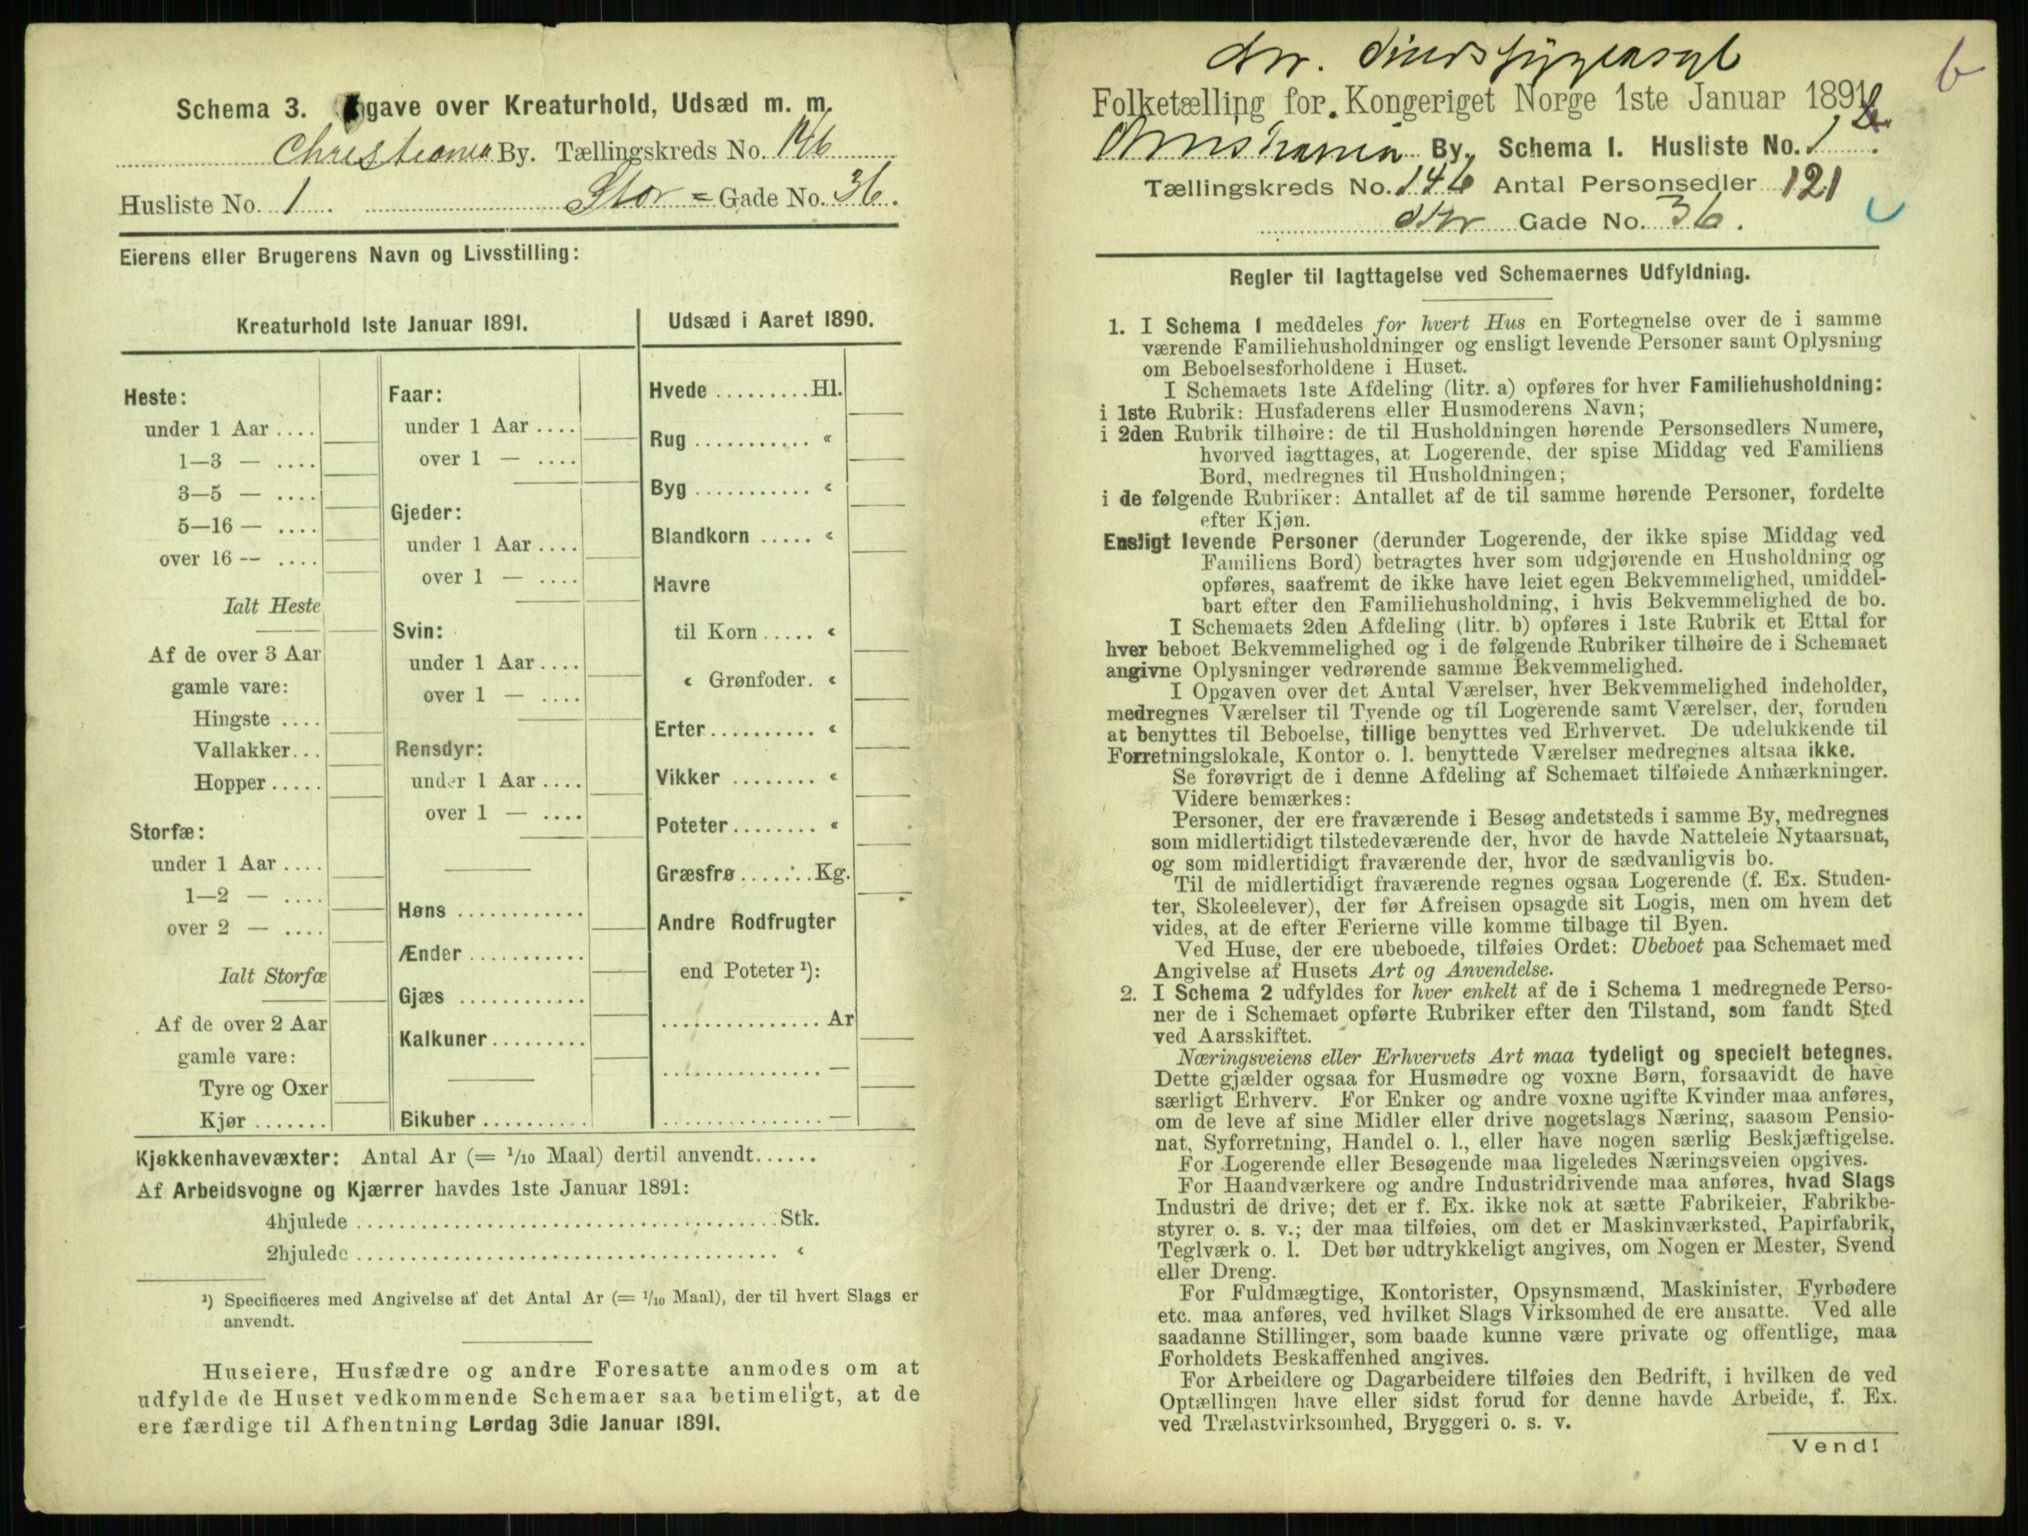 Schema 3. Opgave over Kreaturhold, Udsæd m. m.
Christiania By. Tællingskreds No. 146
Husliste No. 1 Stor = Gade No. 36.
Eierens eller Brugerens Navn og Livsstilling:
Kreaturhold 1ste Januar 1891.
Heste:
under 1 Aar ....
1—3 — ....
3—5 — ....
5—16 — ....
over 16 — ....
Ialt Heste
Af de over 3 Aar
gamle vare:
Hingste ....
Vallakker...
Hopper .....
Storfæ:
under 1 Aar ....
1—2 — ....
over 2 — ....
Ialt Storfæ
Af de over 2 Aar
gamle vare:
Tyre og Oxer
Kjør .......
Faar:
under 1 Aar ....
over 1 — ....
Gjeder:
under 1 Aar ....
over 1 — ....
Svin:
under 1 Aar ....
over 1 — ....
Rensdyr:
under 1 Aar ....
over 1 — ....
Høns ............
Ænder ...........
Gjæs ............
Kalkuner.........
Bikuber ..........
Udsæd i Aaret 1890.
Hvede .........Hl.
Rug ........... «
Byg ........... «
Blandkorn ..... «
Havre
til Korn ..... «
« Grønfoder. «
Erter.......... «
Vikker ........ «
Poteter........ «
Græsfrø .......Kg.
Andre Rodfrugter
end Poteter ¹):
...............Ar
...............—
...............—
Kjøkkenhavevæxter: Antal Ar (= 1/10 Maal) dertil anvendt......
Af Arbeidsvogne og Kjærrer havdes 1ste Januar 1891:
4hjulede ........................................Stk.
2hjulede ........................................ «
¹) Specificeres med Angivelse af det Antal Ar (= 1/10 Maal), der til hvert Slags er
anvendt.
Huseiere, Husfædre og andre Foresatte anmodes om at
udfylde de Huset vedkommende Schemaer saa betimeligt, at de
ere færdige til Afhentning Lørdag 3die Januar 1891.
Sindssygeasyl
b
Folketælling for Kongeriget Norge 1ste Januar 1891.
Kristiania By. Schema 1. Husliste No. 1
Tællingskreds No. 146 Antal Personsedler 121
Stor Gade No. 36.
Regler til Iagttagelse ved Schemaernes Udfyldning.
1. I Schema 1 meddeles for hvert Hus en Fortegnelse over de i samme
værende Familiehusholdninger og ensligt levende Personer samt Oplysning
om Beboelsesforholdene i Huset.
I Schemaets 1ste Afdeling (litr. a) opføres for hver Familiehusholdning:
i 1ste Rubrik: Husfaderens eller Husmoderens Navn;
i 2den Rubrik tilhøire: de til Husholdningen hørende Personsedlers Numere,
hvorved iagttages, at Logerende, der spise Middag ved Familiens
Bord, medregnes til Husholdningen;
i de følgende Rubriker: Antallet af de til samme hørende Personer, fordelte
efter Kjøn.
Ensligt levende Personer (derunder Logerende, der ikke spise Middag ved
Familiens Bord) betragtes hver som udgjørende en Husholdning og
opføres, saafremt de ikke have leiet egen Bekvemmelighed, umiddel-
bart efter den Familiehusholdning, i hvis Bekvemmelighed de bo.
I Schemaets 2den Afdeling (litr. b) opføres i 1ste Rubrik et Ettal for
hver beboet Bekvemmelighed og i de følgende Rubriker tilhøire de i Schemaet
angivne Oplysninger vedrørende samme Bekvemmelighed.
I Opgaven over det Antal Værelser, hver Bekvemmelighed indeholder,
medregnes Værelser til Tyende og til Logerende samt Værelser, der, foruden
at benyttes til Beboelse, tillige benyttes ved Erhvervet. De udelukkende til
Forretningslokale, Kontor o. l. benyttede Værelser medregnes altsaa ikke.
Se forøvrigt de i denne Afdeling af Schemaet tilføiede Anmærkninger.
Videre bemærkes:
Personer, der ere fraværende i Besøg andetsteds i samme By, medregnes
som midlertidigt tilstedeværende der, hvor de havde Natteleie Nytaarsnat,
og som midlertidigt fraværende der, hvor de sædvanligvis bo.
Til de midlertidigt fraværende regnes ogsaa Logerende (f. Ex. Studen-
ter, Skoleelever), der før Afreisen opsagde sit Logis, men om hvem det
vides, at de efter Ferierne ville komme tilbage til Byen.
Ved Huse, der ere ubeboede, tilføies Ordet: Ubeboet paa Schemaet med
Angivelse af Husets Art og Anvendelse.
2. I Schema 2 udfyldes for hver enkelt af de i Schema 1 medregnede Perso-
ner de i Schemaet opførte Rubriker efter den Tilstand, som fandt Sted
ved Aarsskiftet.
Næringsveiens eller Erhvervets Art maa tydeligt og specielt betegnes.
Dette gjælder ogsaa for Husmødre og voxne Børn, forsaavidt de have
særligt Erhverv. For Enker og andre voxne ugifte Kvinder maa anføres,
om de leve af sine Midler eller drive nogetslags Næring, saasom Pensio-
nat, Syforretning, Handel o. l., eller have nogen særlig Beskjæftigelse.
For Logerende eller Besøgende maa ligeledes Næringsveien opgives.
For Haandværkere og andre Industridrivende maa anføres, hvad Slags
Industri de drive; det er f. Ex. ikke nok at sætte Fabrikeier, Fabrikbe-
styrer o. s. v.; der maa tilføies, om det er Maskinværksted, Papirfabrik,
Teglværk o. l. Det bør udtrykkeligt angives, om Nogen er Mester, Svend
eller Dreng.
For Fuldmægtige, Kontorister, Opsynsmænd, Maskinister, Fyrbødere
etc. maa anføres, ved hvilket Slags Virksomhed de ere ansatte. Ved alle
saadanne Stillinger, som baade kunne være private og offentlige, maa
Forholdets Beskaffenhed angives.
For Arbeidere og Dagarbeidere tilføies den Bedrift, i hvilken de ved
Optællingen have eller sidst forud for denne havde Arbeide, f. Ex.
ved Trælastvirksomhed, Bryggeri o. s. v.
Vend!